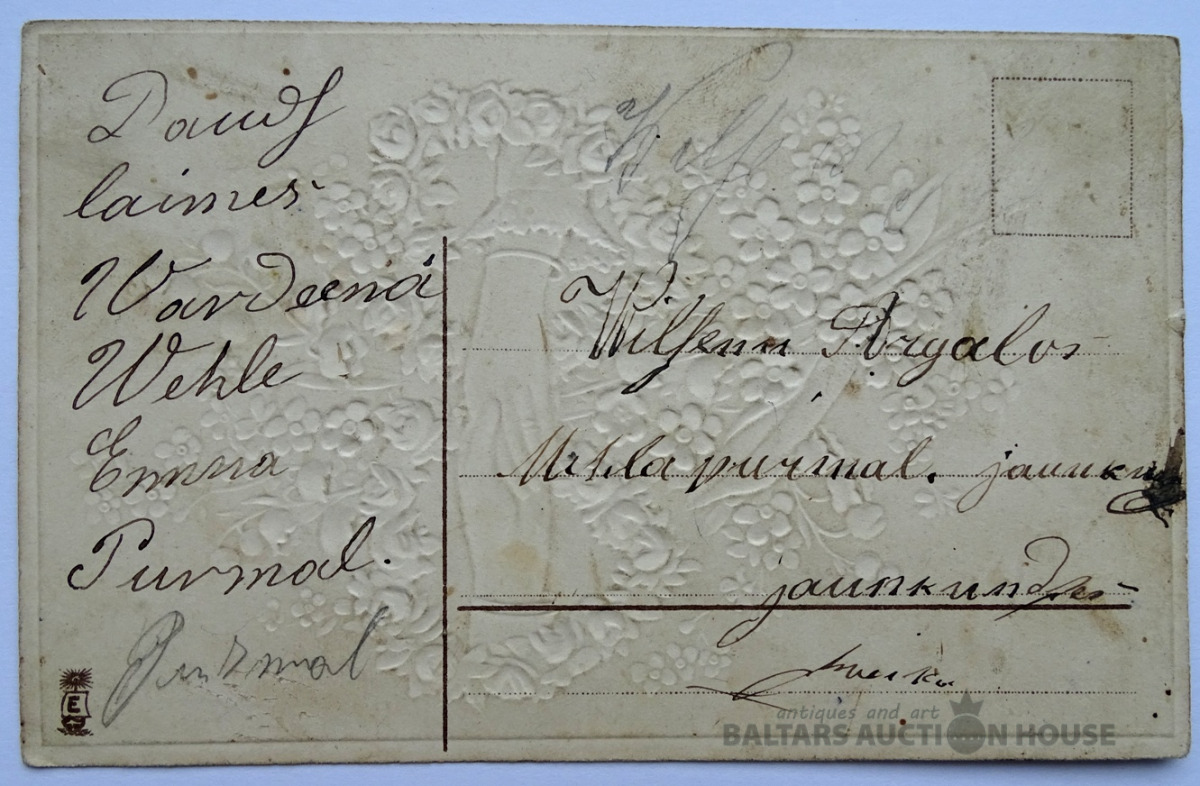 Daudſ
laimes
Wardeená
Wehle
Emma
Purmal.
Purmal
E
Argalos
purmal. jaunkun
jaunkundzes
antiques and art
BALTARS AUCTION HOUSE